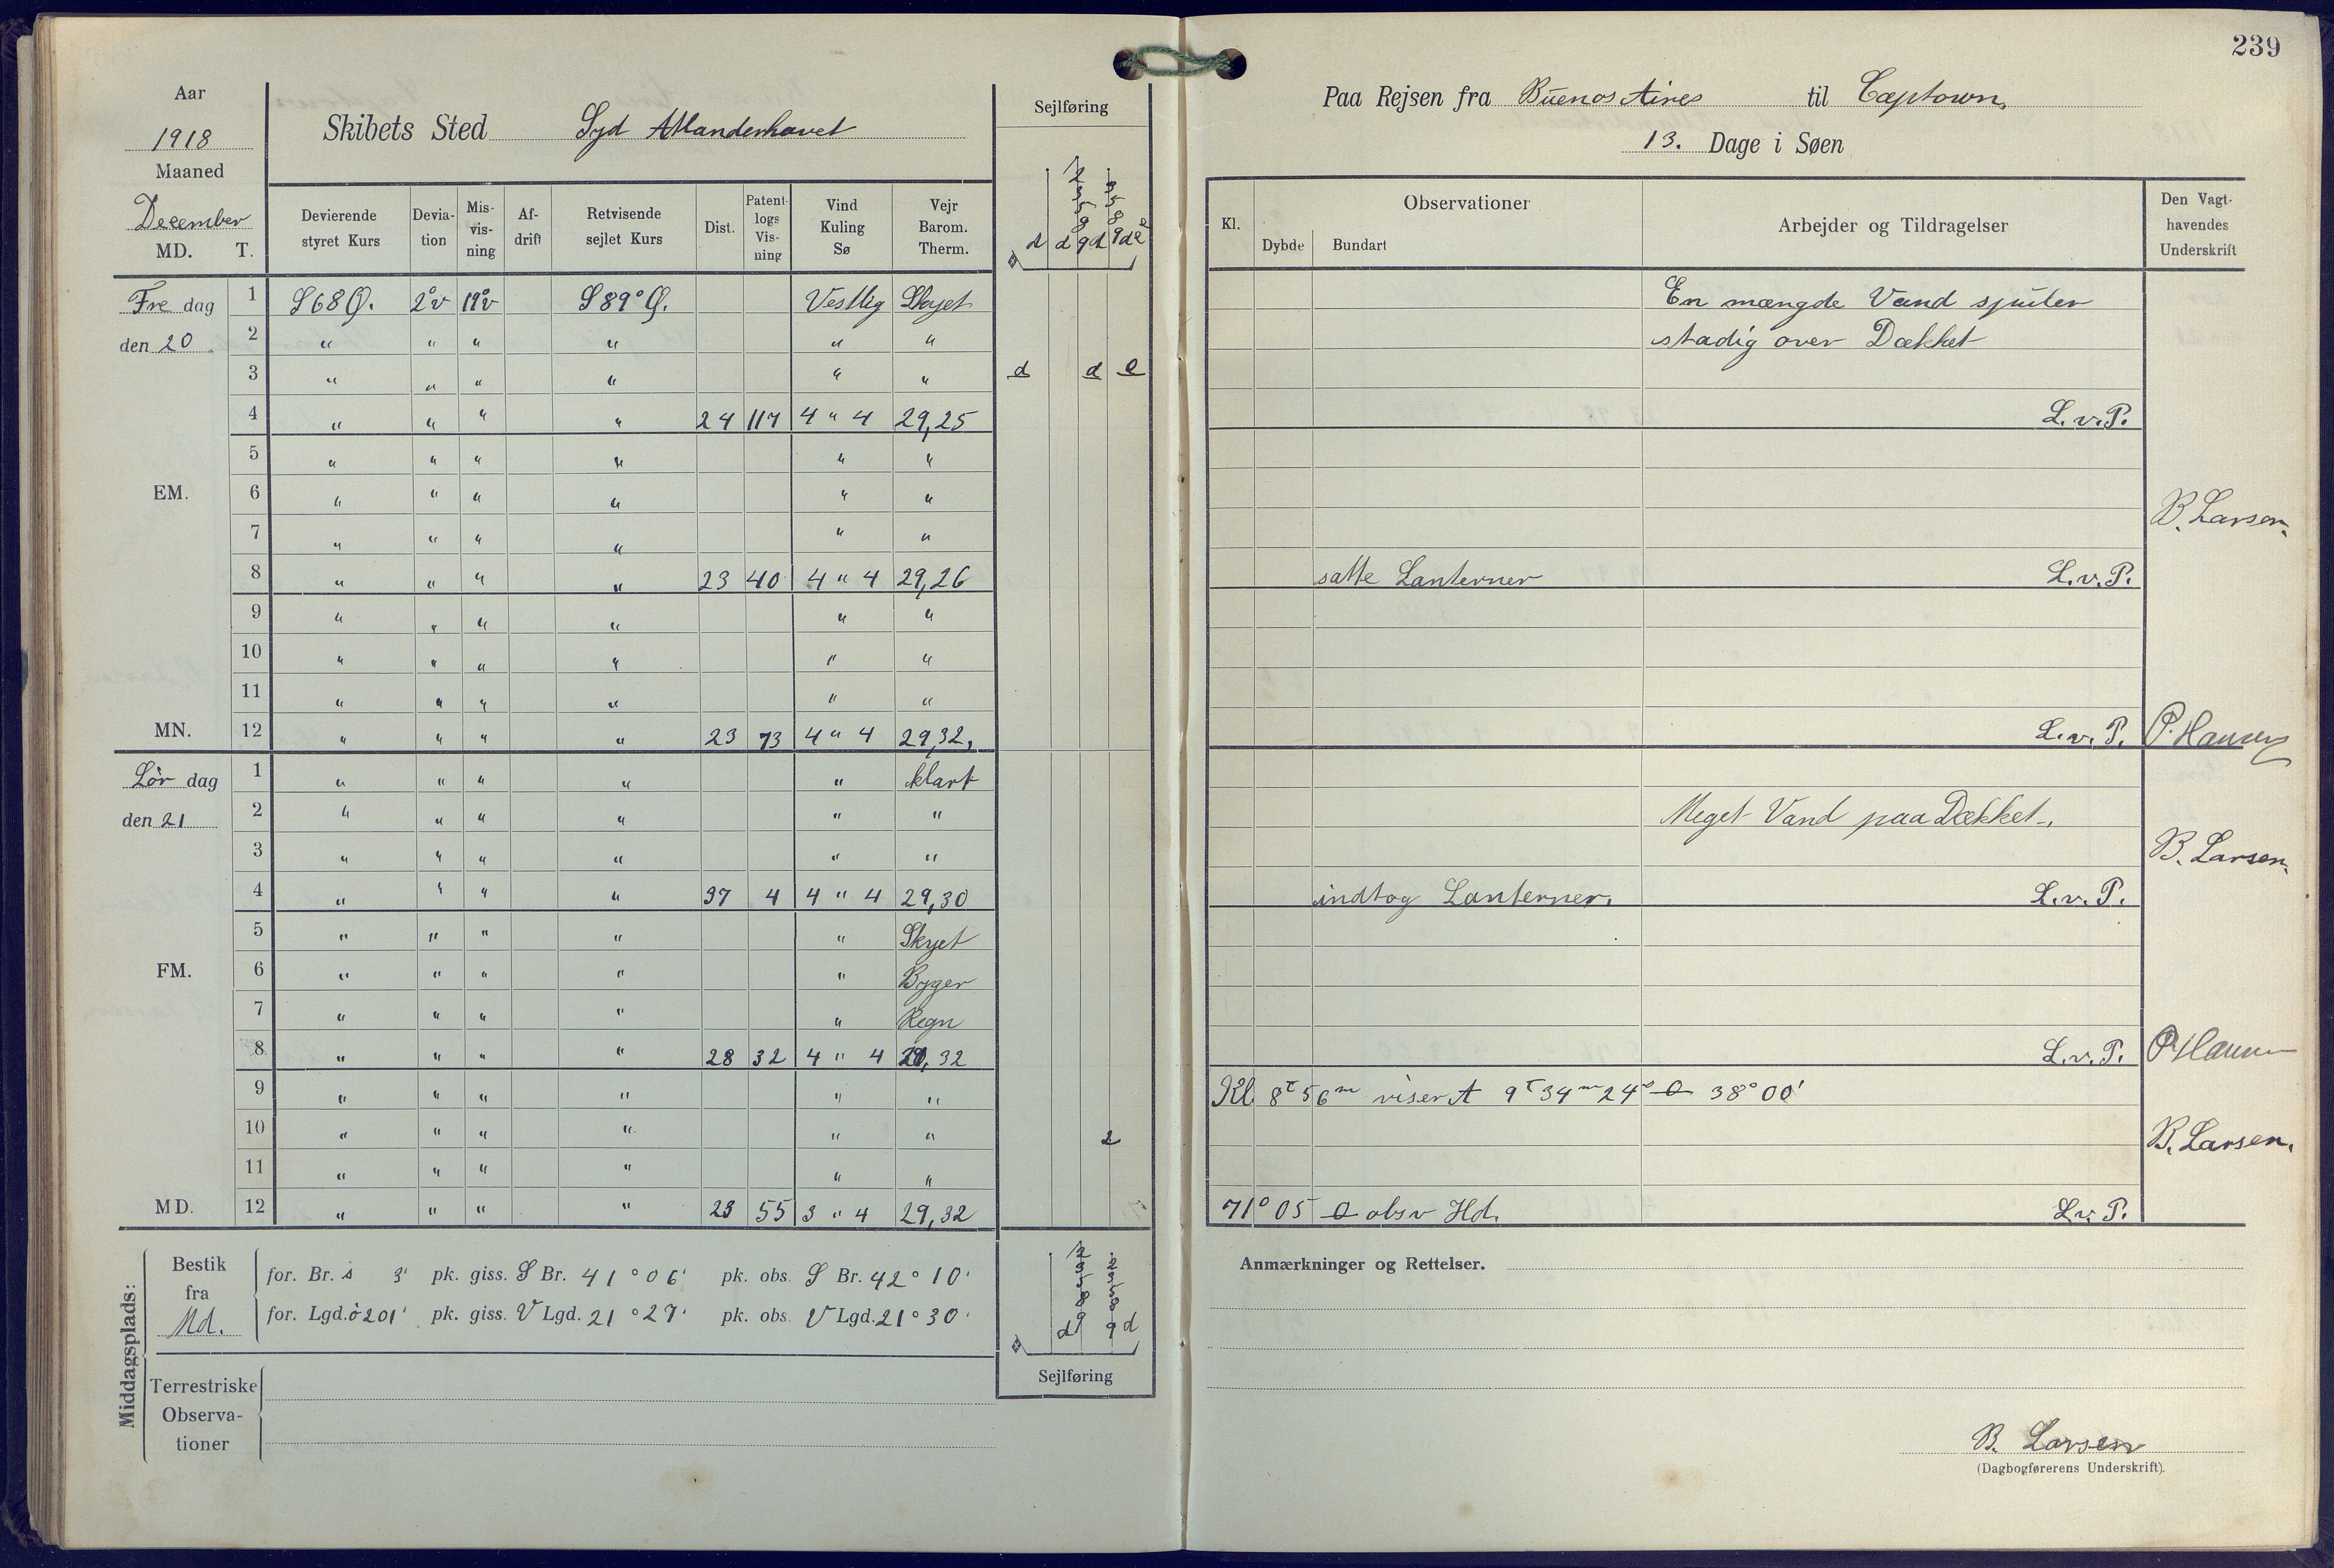 239
Aar
1918
Maaned
December
MD. T.
Skibets Sted Syd Atlanderhavet
Sejlføring
Devierende styret Kurs
Devia-tion
Mis-vis-ning
Af-drift
Retvisende sejlet Kurs
Dist.
Patent-logs Vis-ning
Vind Kuling Sø
Vejr Barom. Therm.
Fre dag 1 S68Ø. 2°v 19°v S89°Ø. Vestlig Skyet
den 20 2 " " " " " "
3 " " " " " " d d e
4 " " " " 24 117 4 " 4 29,25
5 " " " " " "
EM. 6 " " " " " "
7 " " " " " "
8 " " " " 23 40 4 " 4 29,26
9 " " " " " "
10 " " " " " "
11 " " " " " "
MN. 12 " " " " 23 73 4 " 4 29,32,
Lør dag 1 " " " " " klart
den 21 2 " " " " " "
3 " " " " " "
4 " " " " 37 4 4 " 4 29,30
5 " " " " " Skyet
FM. 6 " " " " " Byger
7 " " " " " Regn
8 " " " " 28 32 4 " 4 29,32
9 " " " " " "
10 " " " " " "
11 " " " " " "
MD. 12 " " " " 23 55 3 " 4 29,32
Middagsplads:
Bestik fra Md.
for. Br. s 3' pk. giss. S Br. 41°06' pk. obs. S Br. 42°10'
for. Lgd. ö 201' pk. giss. V Lgd. 21°27' pk. obs. V Lgd. 21°30'
Terrestriske Observa-tioner
Sejlføring
Paa Rejsen fra Buenos Aires til Captown,
13. Dage i Søen
Kl.
Observationer
Dybde Bundart
Arbejder og Tildragelser
Den Vagt-havendes Underskrift
En mængde Vand spuler
stadig over Dækket
L.v.P.
B. Larsen.
satte Lanterner L.v.P.
L.v.P. P. Hansen
Meget Vand paa Dækket.
B. Larsen.
indtog Lanterner. L.v.P.
L.v.P. P. Hansen
Kl. 8ᵗ56ᵐ viser A 9ᵗ34ᵐ24ˢ 38°00'
B. Larsen.
71°05 obsv Hd. L.v.P.
Anmærkninger og Rettelser.
B. Larsen
(Dagbogførerens Underskrift).